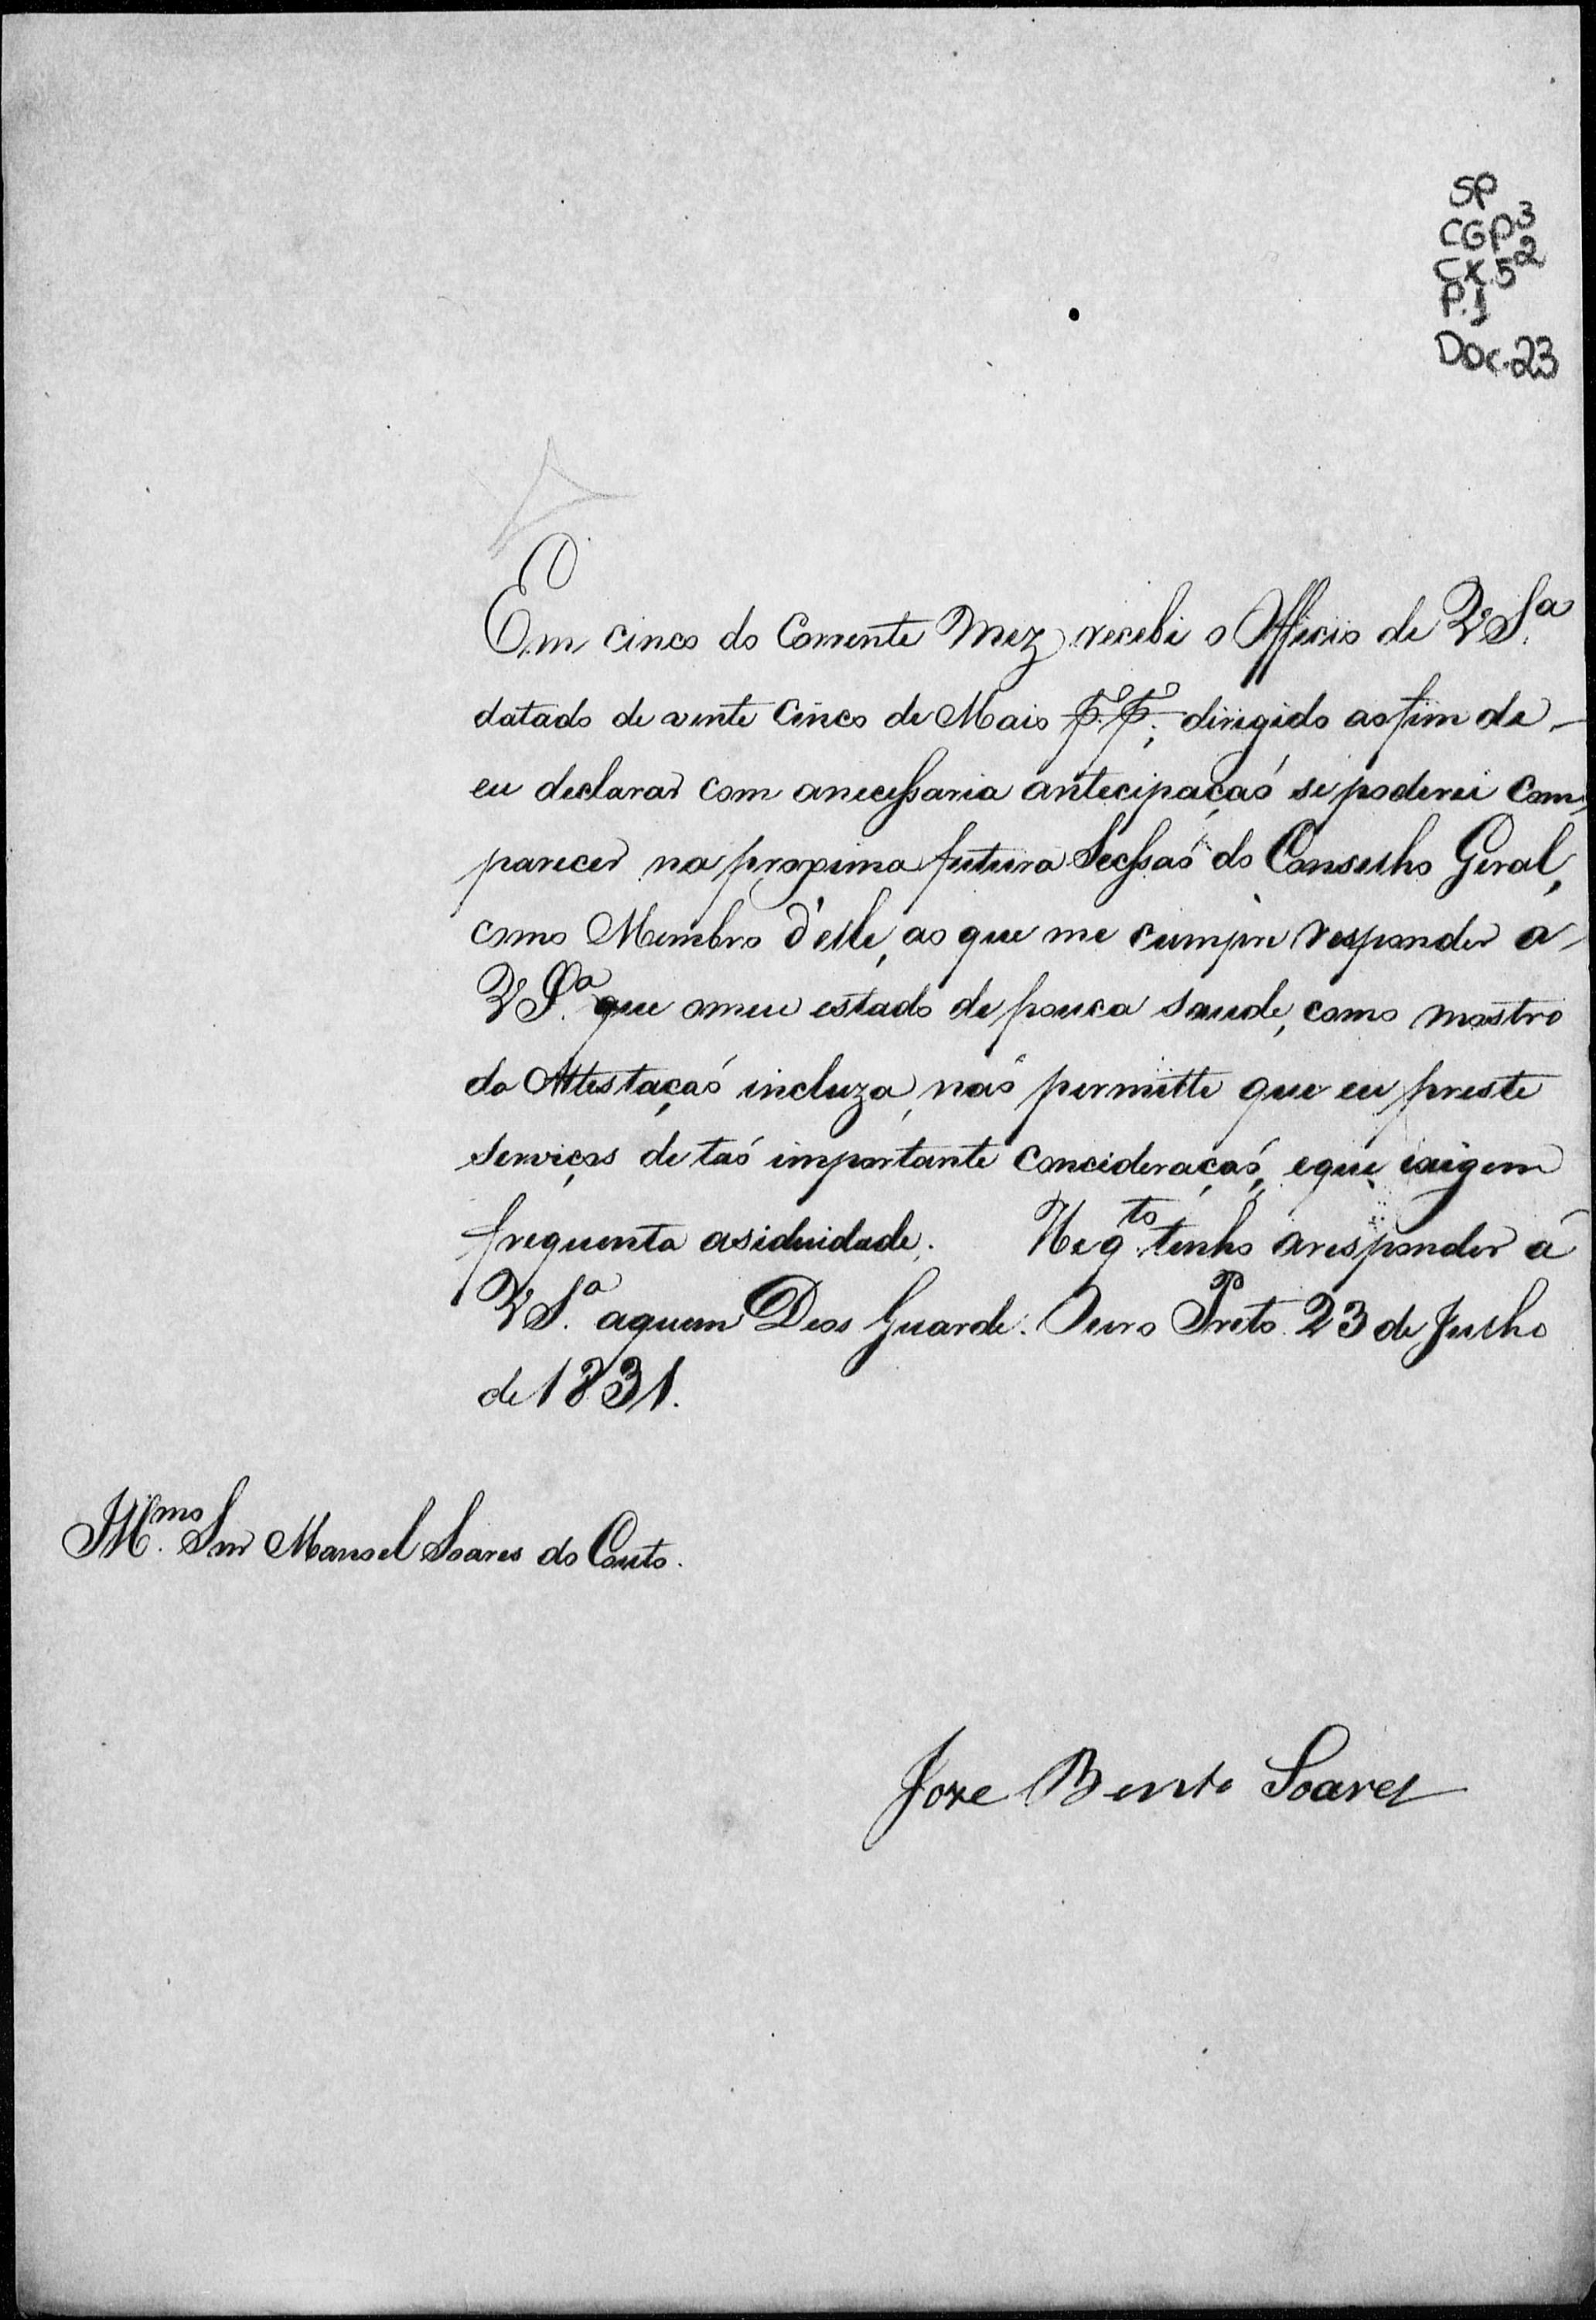 SP
CGP3
CX.52
P.J
Doc.23
Em cinco do Corrente Mez recebi o Officio de V S.ª
datado de vente Cinco de Maio P.P., dirigido ao fim de
eu declarar com anecessaria antecipação se poderei com
parecer na proxima futura Secssaõ do Conselho Geral,
como Membro d'elle, ao que me cumpre responder a
V S.ª que omeu estado de pouca saude, como mostro
da Attestaçaõ incluza, naõ permitte que eu preste
serviços de taõ importante Concideraçaõ, eque exigem
frequenta asiduidade. He q.to tenho aresponder á
V S.ª aquem Deos Guarde. Ouro Preto 23 de Julho
de 1831.
Ill.mo Snr Manoel Soares do Couto.
Joze Bento Soares